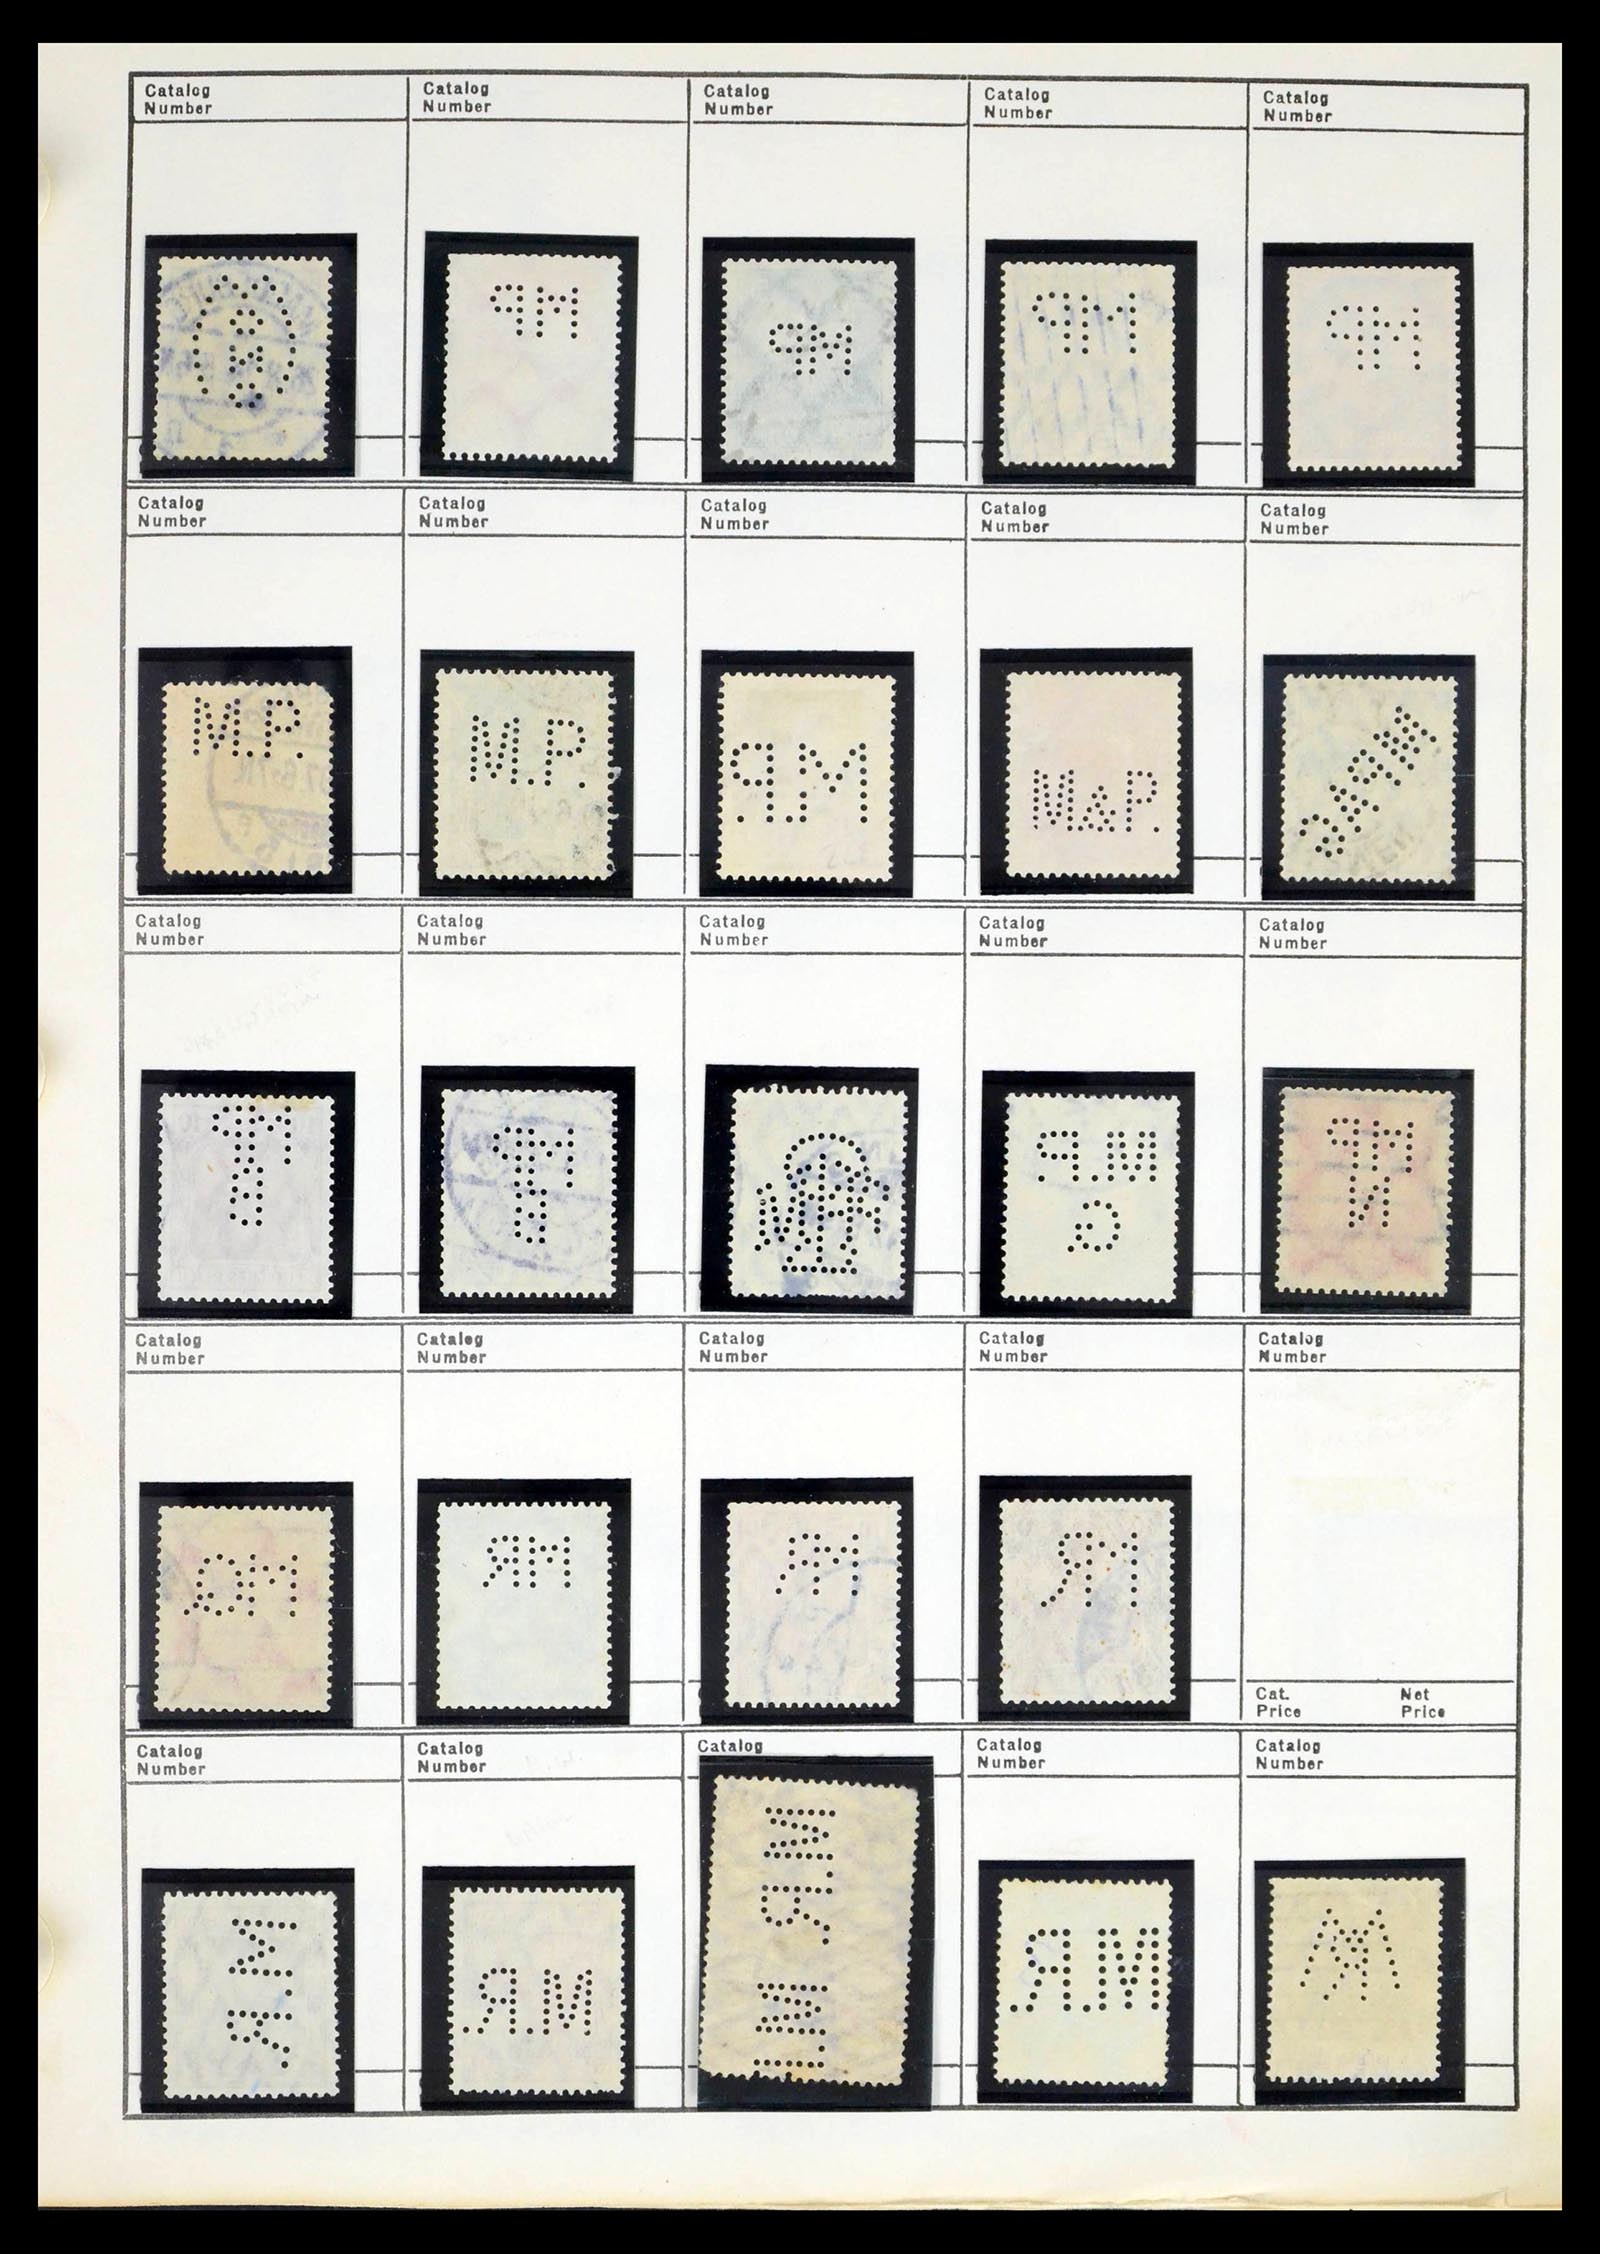 Catalog Number Catalog Number Catalog Number Catalog Number Catalog Number
MP MP MP MP
Catalog Number Catalog Number Catalog Number Catalog Number Catalog Number
M.P. M.P. M.P. M&P.
Catalog Number Catalog Number Catalog Number Catalog Number Catalog Number
MP MP M.P MP
B B G. N
Catalog Number Catalog Number Catalog Number Catalog Number Catalog Number
MQ MR MR MR
Cat. Price Net Price
Catalog Number Catalog Number Catalog Catalog Number Catalog Number
MR M.R. M.R. M M.R. MR